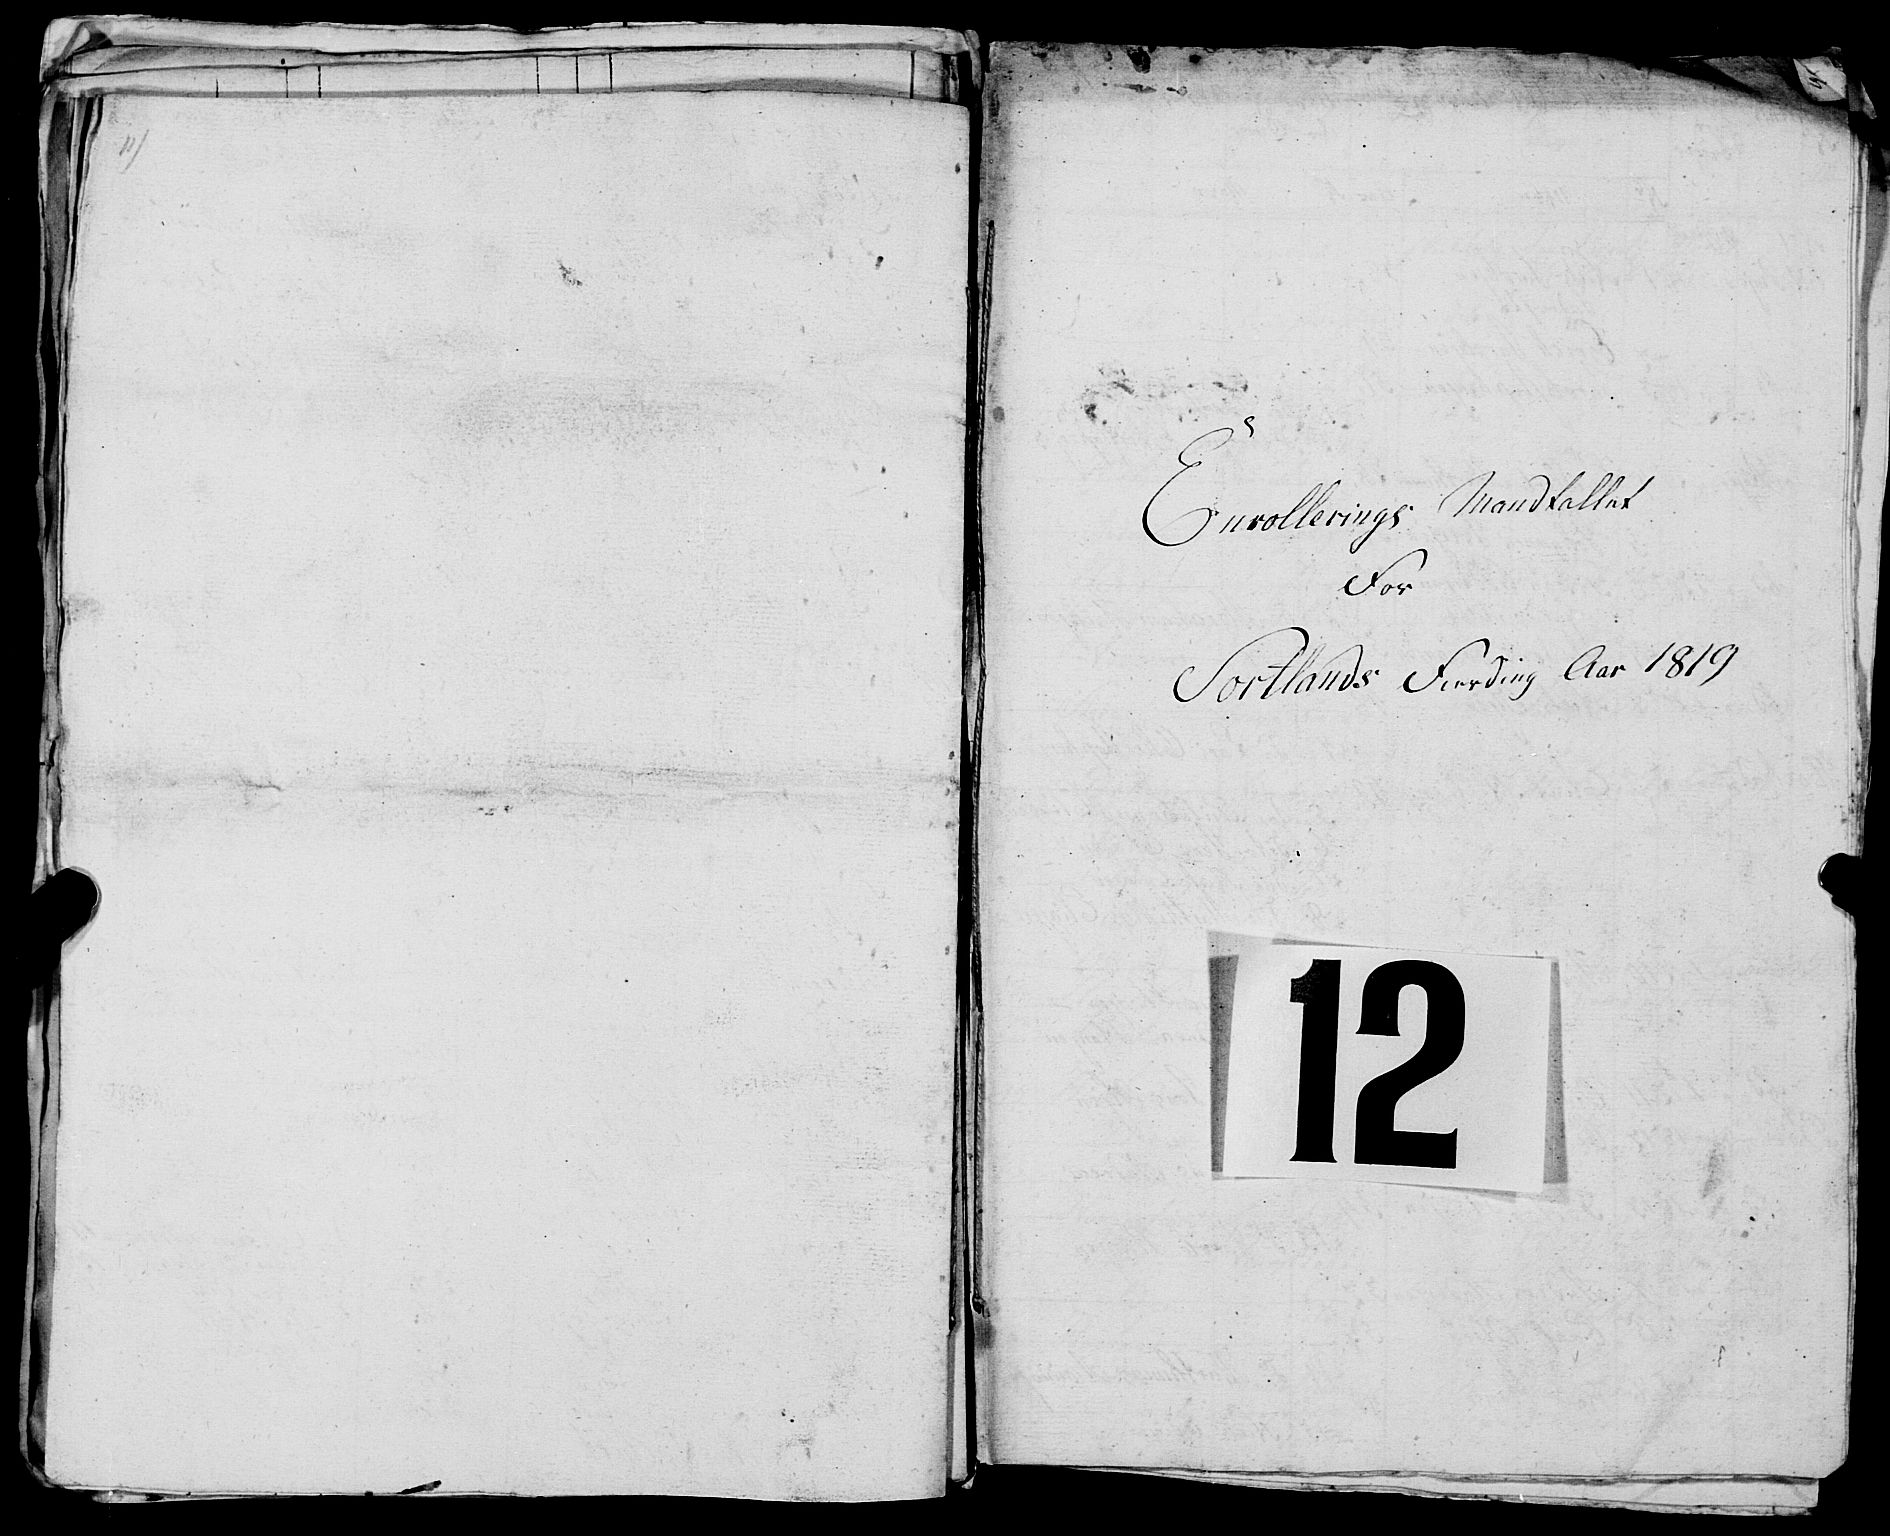 11)
Enrollerings Mandtallet
For
Sortlands Fierding Aar 1819
12